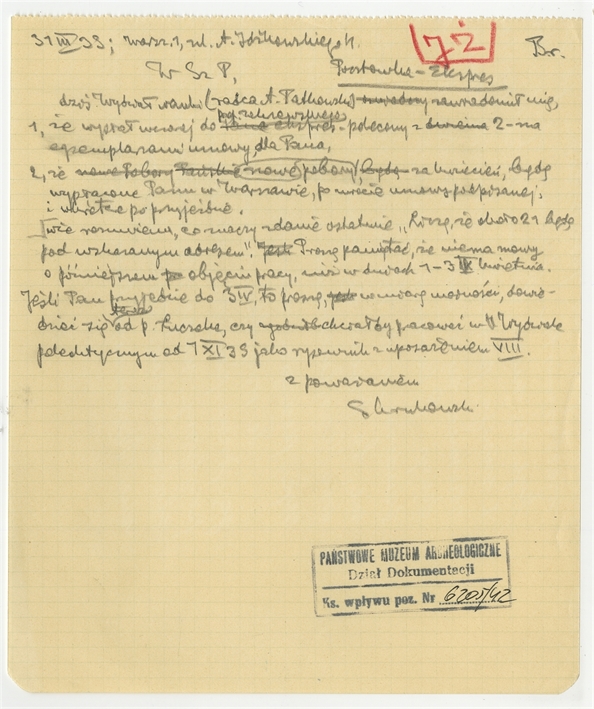 31 III 33; Warsz. 1, ul. A.
7Ż
Br.
W Sz P,
Pocztówka - Ekspres
dziś Wydział nauki (radca A. Patkowski) zawiadomił mię,
1, że wysłał wczoraj do ekspres - polecony 2-na
egzemplarzami umowy, dla Pana,
2, że nowe pobory, za kwiecień, będą
wypłacone Panu w Warszawie, po umowy podpisanej,
i wkrótce po przyjeździe.
Nie rozumiem, co znaczy zdanie ostatnie „Liczę, że około 21 będę
pod wskazanym adresem". Proszę pamiętać, że niema mowy
o późniejszem objęciu pracy, niż w dniach 1-3 kwietnia.
Jeśli Pan przyjedzie do 3 IV, to proszę, w miarę możności, dowie-
dzieć się od p. czy chciałby pracować w Wydziale
od 1 XI 33 jako rysownik z uposażeniem VIII.
z poważaniem
PAŃSTWOWE MUZEUM ARCHEOLOGICZNE
Dział Dokumentacji
Ks. wpływu poz. Nr 6205/42